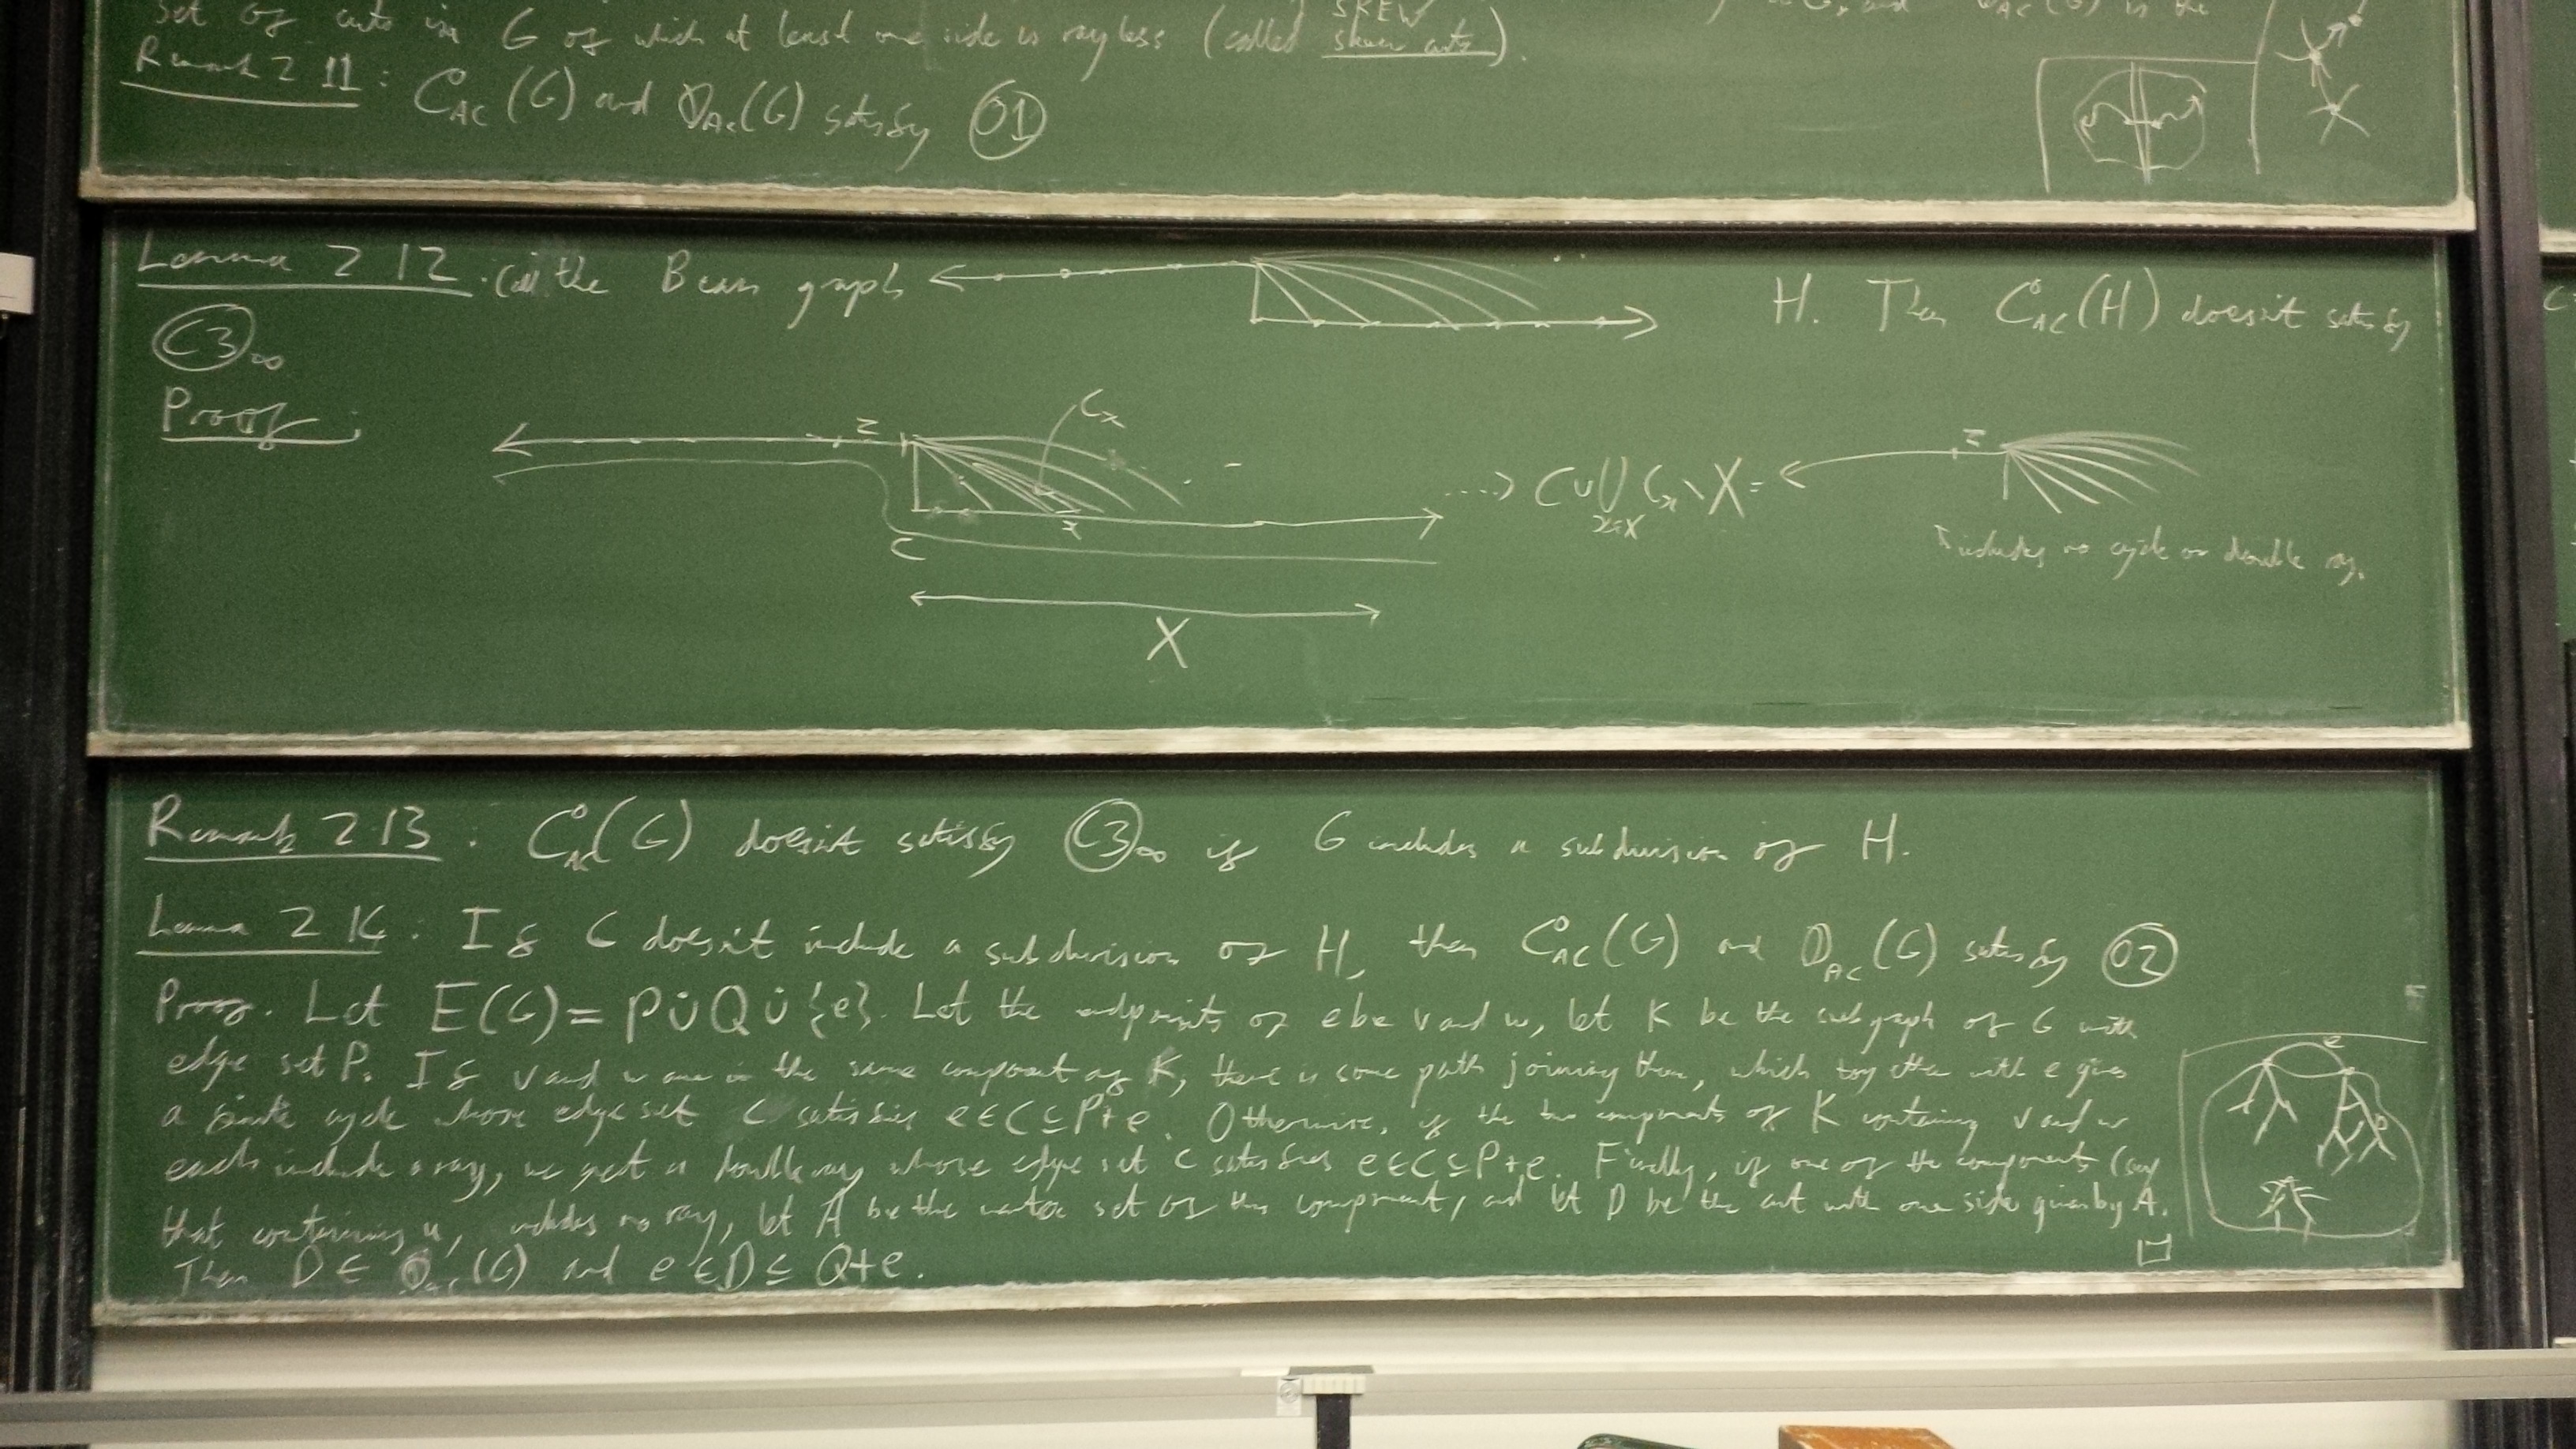 set of cuts in G of which at least one side is rayless (called skew cuts).
SKEW
Remark 2.11: C°_AC(G) and D_AC(G) satisfy (O1)
Lemma 2.12. Call the Bean graph H. Then C°_AC(H) doesn't satisfy
(C3)∞
Proof:
z C_x x C X
C ∪ ⋃_{x∈X} C_x \ X =
z
includes no cycle or double ray.
Remark 2.13: C°_AC(G) doesn't satisfy (C3)∞ if G includes a subdivision of H.
Lemma 2.14: If G doesn't include a subdivision of H, then C°_AC(G) and D_AC(G) satisfy (O2)
Proof. Let E(G) = P ∪̇ Q ∪̇ {e}. Let the endpoints of e be v and w, let K be the subgraph of G with
edge set P. If v and w are in the same component of K, there is some path joining them, which together with e gives
a finite cycle whose edge set C satisfies e∈C⊆P+e. Otherwise, if the two components of K containing v and w
each include a ray, we get a double ray whose edge set C satisfies e∈C⊆P+e. Finally, if one of the components (say
that containing v, includes no ray, let A be the vertex set of this component, and let D be the cut with one side given by A.
Then D ∈ D_AC(G) and e∈D⊆Q+e. □
e